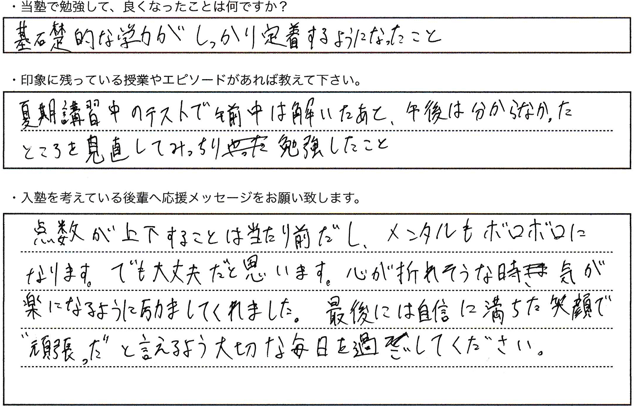 ・当塾で勉強して、良くなったことは何ですか？
基礎的な学力がしっかり定着するようになったこと
・印象に残っている授業やエピソードがあれば教えて下さい。
夏期講習中のテストで午前中は解いたあと、午後は分からなかった
ところを見直してみっちり勉強したこと
・入塾を考えている後輩へ応援メッセージをお願い致します。
点数が上下することは当たり前だし、メンタルもボロボロに
なります。でも大丈夫だと思います。心が折れそうな時、気が
楽になるように励ましてくれました。最後には自信に満ちた笑顔で
"頑張っだ"と言えるよう大切な毎日を過ごしてください。